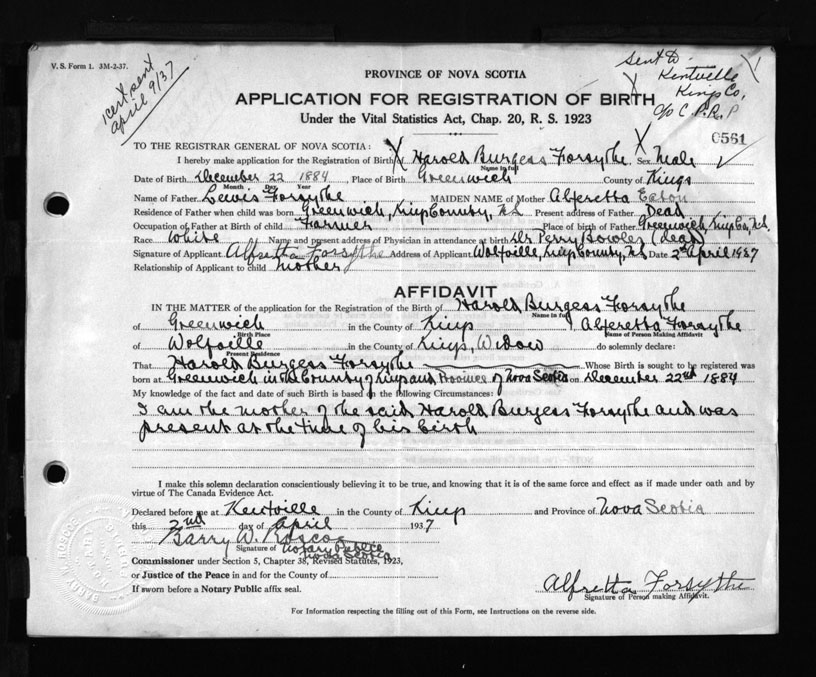 V. S. Form 1. 3M-2-37.
cert sent
april 9/37
Sent to
Kentville
Kings Co,
c/o C. P. R.
PROVINCE OF NOVA SCOTIA
APPLICATION FOR REGISTRATION OF BIRTH
Under the Vital Statistics Act, Chap. 20, R. S. 1923
0561
TO THE REGISTRAR GENERAL OF NOVA SCOTIA:
I hereby make application for the Registration of Birth of Harold Burgess Forsythe Sex Male
Name in full
Date of Birth December 22 1884, Place of Birth Greenwich County of Kings
Month Day Year
Name of Father Lewis Forsythe MAIDEN NAME of Mother Alferetta Eaton
Residence of Father when child was born Greenwich, Kings County, N.S. Present address of Father Dead
Occupation of Father at Birth of child Farmer Place of birth of Father Greenwich, Kings Co, N.S.
Race White Name and present address of Physician in attendance at birth Dr Perry Bowles (dead)
Signature of Applicant Alfretta Forsythe Address of Applicant Wolfville, Kings County, N.S. Date 2nd April 1937
Relationship of Applicant to child mother
AFFIDAVIT
IN THE MATTER of the application for the Registration of the Birth of Harold Burgess Forsythe
Name in full
of Greenwich in the County of Kings I, Alferetta Forsythe
Birth Place Name of Person Making Affidavit
of Wolfville in the County of Kings, Widow do solemnly declare:
Present Residence
That Harold Burgess Forsythe Whose Birth is sought to be registered was
born at Greenwich in the County of Kings and Province of Nova Scotia on December 22nd 1884
My knowledge of the fact and date of such Birth is based on the following Circumstances:
I am the mother of the said Harold Burgess Forsythe and was
present at the time of his birth
I make this solemn declaration conscientiously believing it to be true, and knowing that it is of the same force and effect as if made under oath and by
virtue of The Canada Evidence Act.
Declared before me at Kentville in the County of Kings and Province of Nova Scotia
this 2nd day of April 1937
Barry W. Roscoe
Signature of Notary Public
Nova Scotia
Commissioner under Section 5, Chapter 38, Revised Statutes, 1923,
or Justice of the Peace in and for the County of
If sworn before a Notary Public affix seal.
Alfretta Forsythe
Signature of Person making Affidavit.
For Information respecting the filling out of this Form, see Instructions on the reverse side.